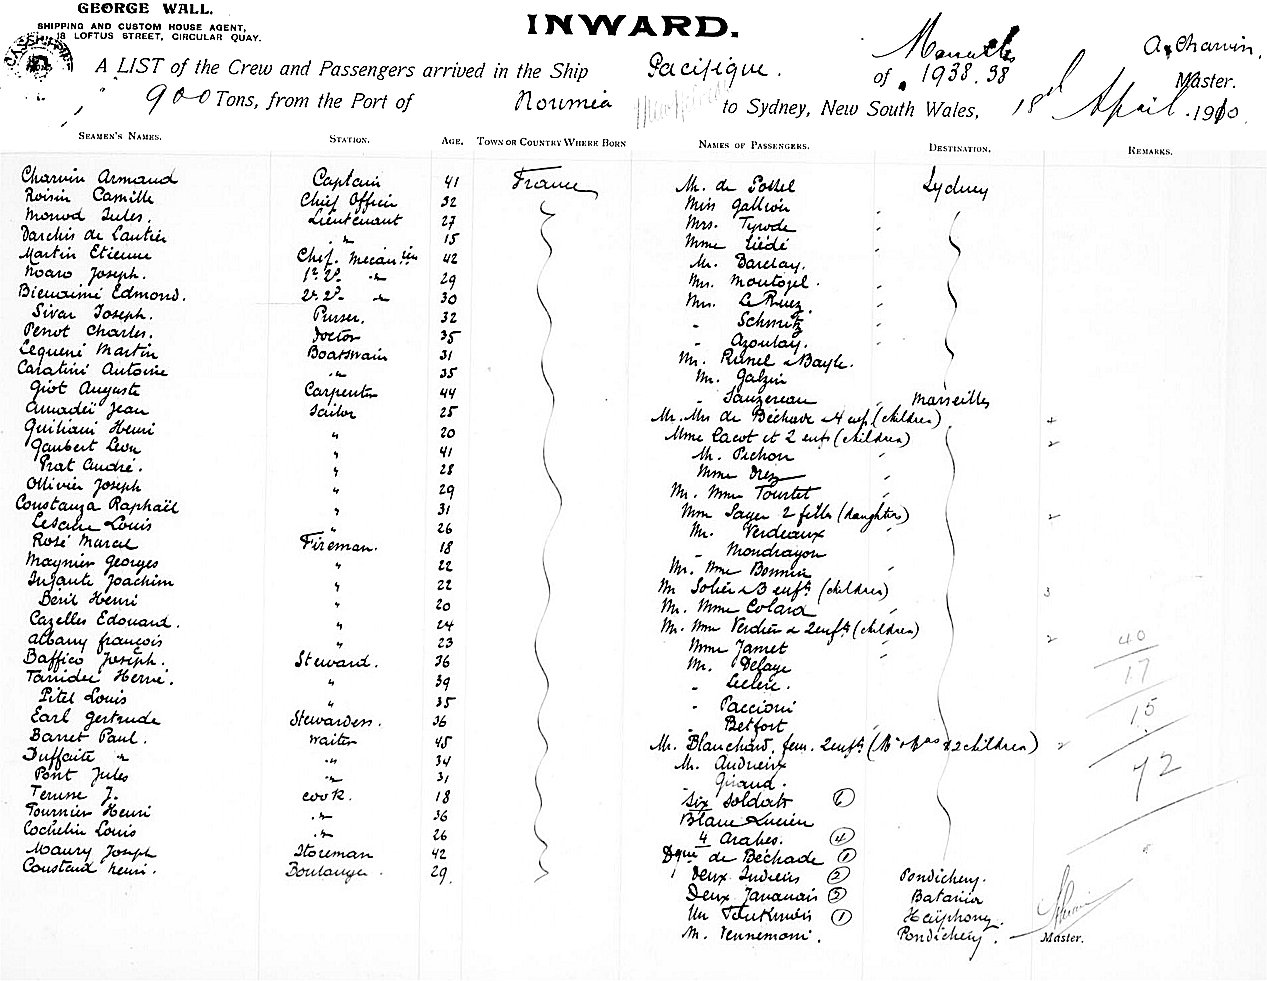 GEORGE WALL.
SHIPPING AND CUSTOM HOUSE AGENT,
18 LOFTUS STREET, CIRCULAR QUAY.
INWARD.
A LIST of the Crew and Passengers arrived in the Ship Pacifique. of Marseilles 1938.38 A. Charvin, Master.
900 Tons, from the Port of Noumea to Sydney, New South Wales, 18d April 1910.
SEAMEN'S NAMES. STATION. AGE. TOWN OR COUNTRY WHERE BORN
Charvin Armaud Captain 41 France
Roisin Camille Chief Officer 32
Monod Jules. Lieutenant 27
Darchis de Lautier " 15
Martin Etienne Chef. Mecan 42
Noaro Joseph. 1r 2d " 29
Bienaimé Edmond. 2e 2d " 30
Sivan Joseph. Purser. 32
Penot Charles. Doctor 35
Lequené Martin Boatswain 31
Calatini Antoine " 35
Giot Auguste Carpenter 44
Amadeï Jean Sailor 25
Guiliani Henri " 20
Gaubert Leon " 41
Prat André. " 28
Ollivier Joseph " 29
Constanza Raphaël " 31
Louis " 26
Rosé Marcel Fireman. 18
Maynier Georges " 22
Infante Joachim " 22
Béril Henri " 20
Cazelles Edouard. " 24
Albany françois " 23
Baffico Joseph. Steward. 36
Tanidei Hervé. " 39
Pitel Louis " 35
Earl Gertrude Stewardess. 36
Barret Paul. Waiter 45
Duffaite " " 34
Pont Jules " 31
Terusse J. Cook. 18
Tournier Henri " 36
Cochelin Louis " 26
Maury Joseph Storeman 42
Constand henri. Boulanger. 29.
NAMES OF PASSENGERS. DESTINATION. REMARKS.
M. de Postel Sydney
Miss Gallion "
Mrs. Tyrode "
Mme Liédé "
M. Barclay. "
Mrs. Montogel. "
Mrs. Le Ruez "
" Schmitz "
" Azoulay. "
Mr. Runel & Bayle.
M. Galzin
" Sauzereau " Marseilles
Mr. Mrs de Béchade & 4 enf. (children) 4
Mme Cacot et 2 enfs (children) 2
M. Pichon "
Mme Drez "
Mr. Mme Tourtet "
Mme Sayer 2 filles (daughters) 2
Mr. Verdeaux "
" Mondragon
Mr. Mme Bonnin "
Mr Solier & 3 enfts (children) 3
Mr. Mme Colard "
Mr. Mme Verdier & 2 enfts (children) 2
Mme Jamet "
Mr. Delaye "
" Leclerc.
" Paccioni
" Betfort "
Mr. Blanchard, fem. 2 enfts (Mr & Mrs & 2 children) 2
M. Audreix
" Giraud.
Six Soldats 6
Blanc Lucien
4 Arabes. 4
de Béchade 1
Deux Indiens 2 Pondichery.
Deux Javanais 2 Batavia
Un Tonkinois 1 Haïphong.
M. Vennemani. Pondichery.
40
17
15
72
Master.